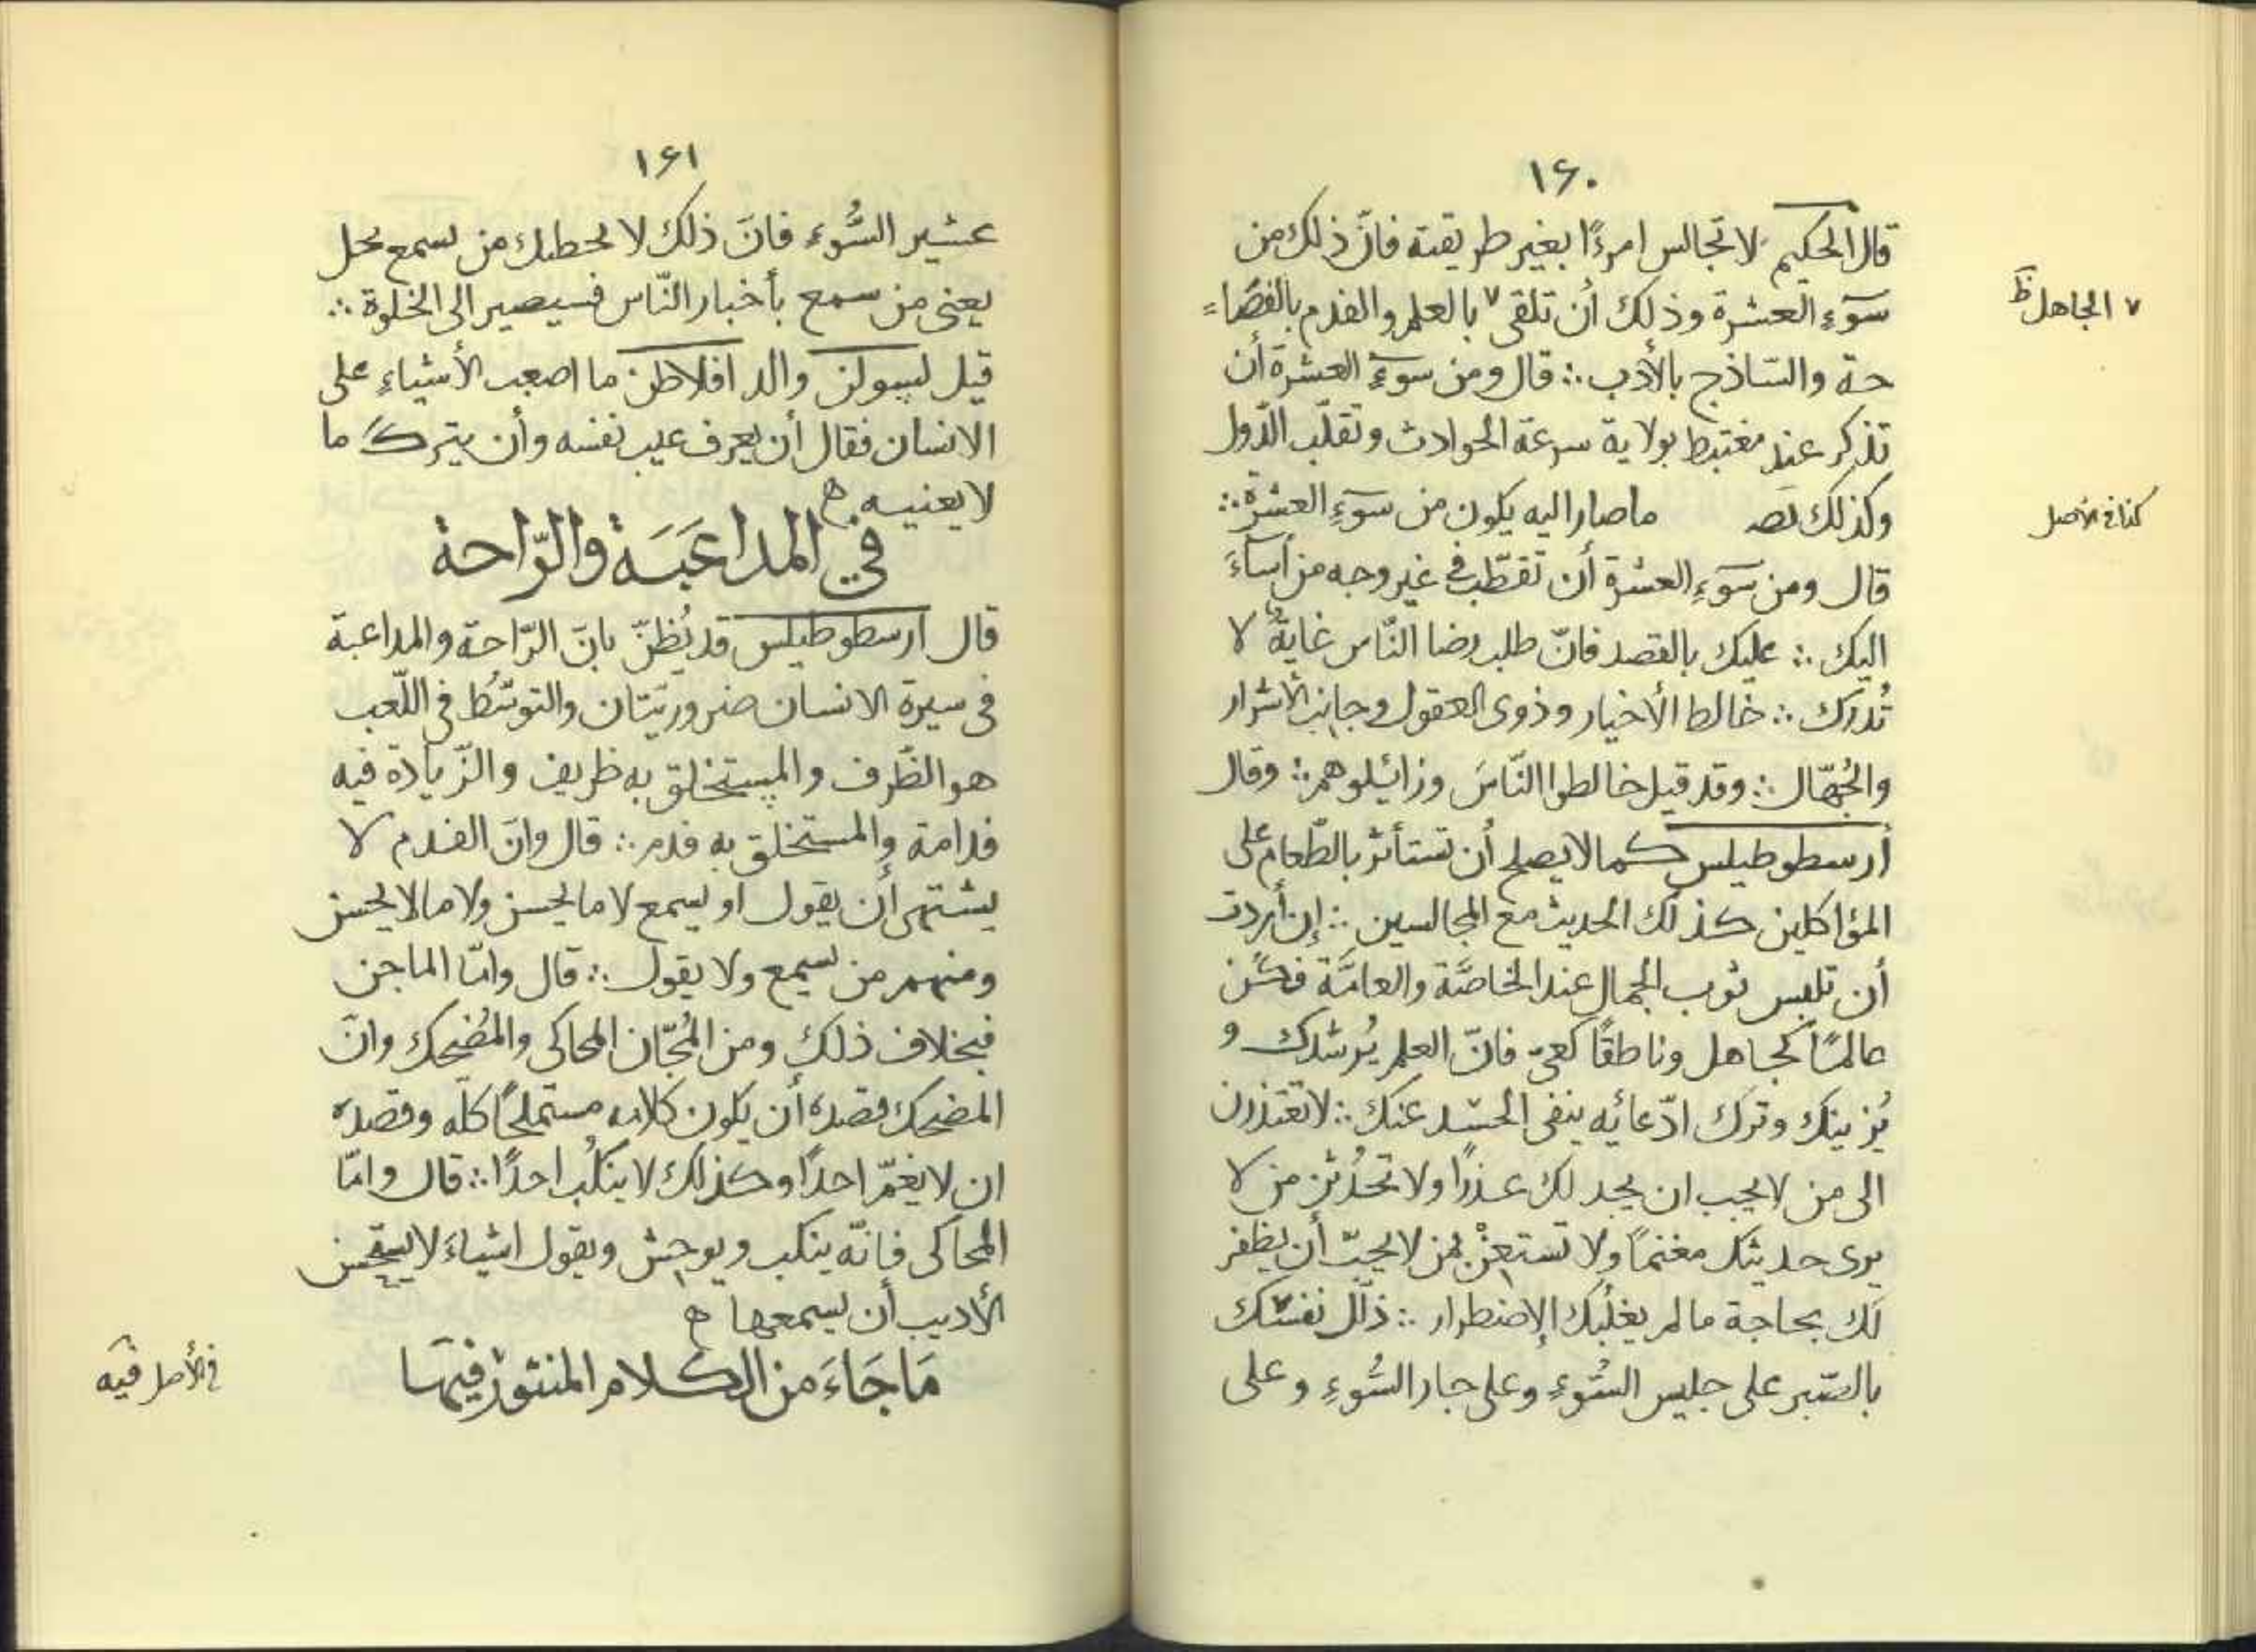 ١٦٠
قال الحكيم لا تجالس امرءًا بغير طريقته فانّ ذلك من
سوٓءِ العشرة وذلك أن تلقى ٧ بالعلم والفدم بالفصا=
٧ الجاهل ظ
حة والسّاذج بالأدب ∴ قال ومن سوٓءِ العشرة أن
تذكر عند مغتبط بولاية سرعة الحوادث وتقلّب الدّول
وكذلك ما صار اليه يكون من سوٓءِ العشرة ∴
كذا فى الأصل
قال ومن سوٓءِ العشرة أن تقطّب فى غير وجه من أساءَ
اليك ∴ عليك بالقصد فانّ طلب رضا النّاس غاية لا
تُدرَك ∴ خالط الأخيار وذوى العقول وجانب الأشرار
والجُهّال ∴ وقد قيل خالطوا النّاسَ وزائيلوهم ∴ وقال
أرسطوطيلس كما لا يصلح أن تستأثر بالطّعام على
المؤاكلين كذلك الحديث مع المجالسين ∴ إن أردت
أن تلبس ثوب الجمال عند الخاصّة والعامّة فكُن
عالمًا كجاهل وناطقًا كعىّ فانّ العلم يُرشدك و
يُزينك وترك ادّعائه ينفى الحسد عنك ∴ لا تعتذرن
الى من لا يحب ان يجد لك عذرًا ولا تحدُثن من لا
يرى حديثك مغنمًا ولا تستعنْ بمن لا يحبّ أن يظفر
لك بحاجة ما لم يغلُبك الإضطرار ∴ ذلّل نفسك
بالصّبر على جليس السُّوءِ وعلى جار السُّوءِ وعلى
١٦١
عشير السُّوءِ فانّ ذلك لا من سمع
يعنى من سمع بأخبار النّاس فسيصير الى الخلوة ∴
قيل لسولن والد افلاطن ما اصعب الأشياءِ على
الانسان فقال أن يعرف عيب نفسه وأن يترك ما
لا يعنيه ه
فى المداعَبَة والرّاحة
قال ارسطوطيلس قد يُظنّ بانّ الرّاحة والمداعبة
فى سيرة الانسان ضروريّتان والتوسّط فى اللّعب
هو الظّرف والمستخلق به ظريف والزّيادة فيه
فدامة والمستخلق به فدم ∴ قال وانّ الفدم لا
يشتهى أن يقول او يسمع لا ما يحسن ولا ما لا يحسن
ومنهم من يسمع ولا يقول ∴ قال وامّا الماجن
فبخلاف ذلك ومن المُجّان المحاكى والمُضحك وانّ
المضحك قصده أن يكون كلامه مستملحًا كلّه وقصده
ان لا يغمّ احدًا وكذلك لا ينكُب احدًا ∴ قال وامّا
المحاكى فانّه ينكب ويوحش ويقول اشياءَ لا يستحسن
الأديب أن يسمعها ه
مَا جَاءَ من الكلام المنثور فيهما
فى الأصل فيه